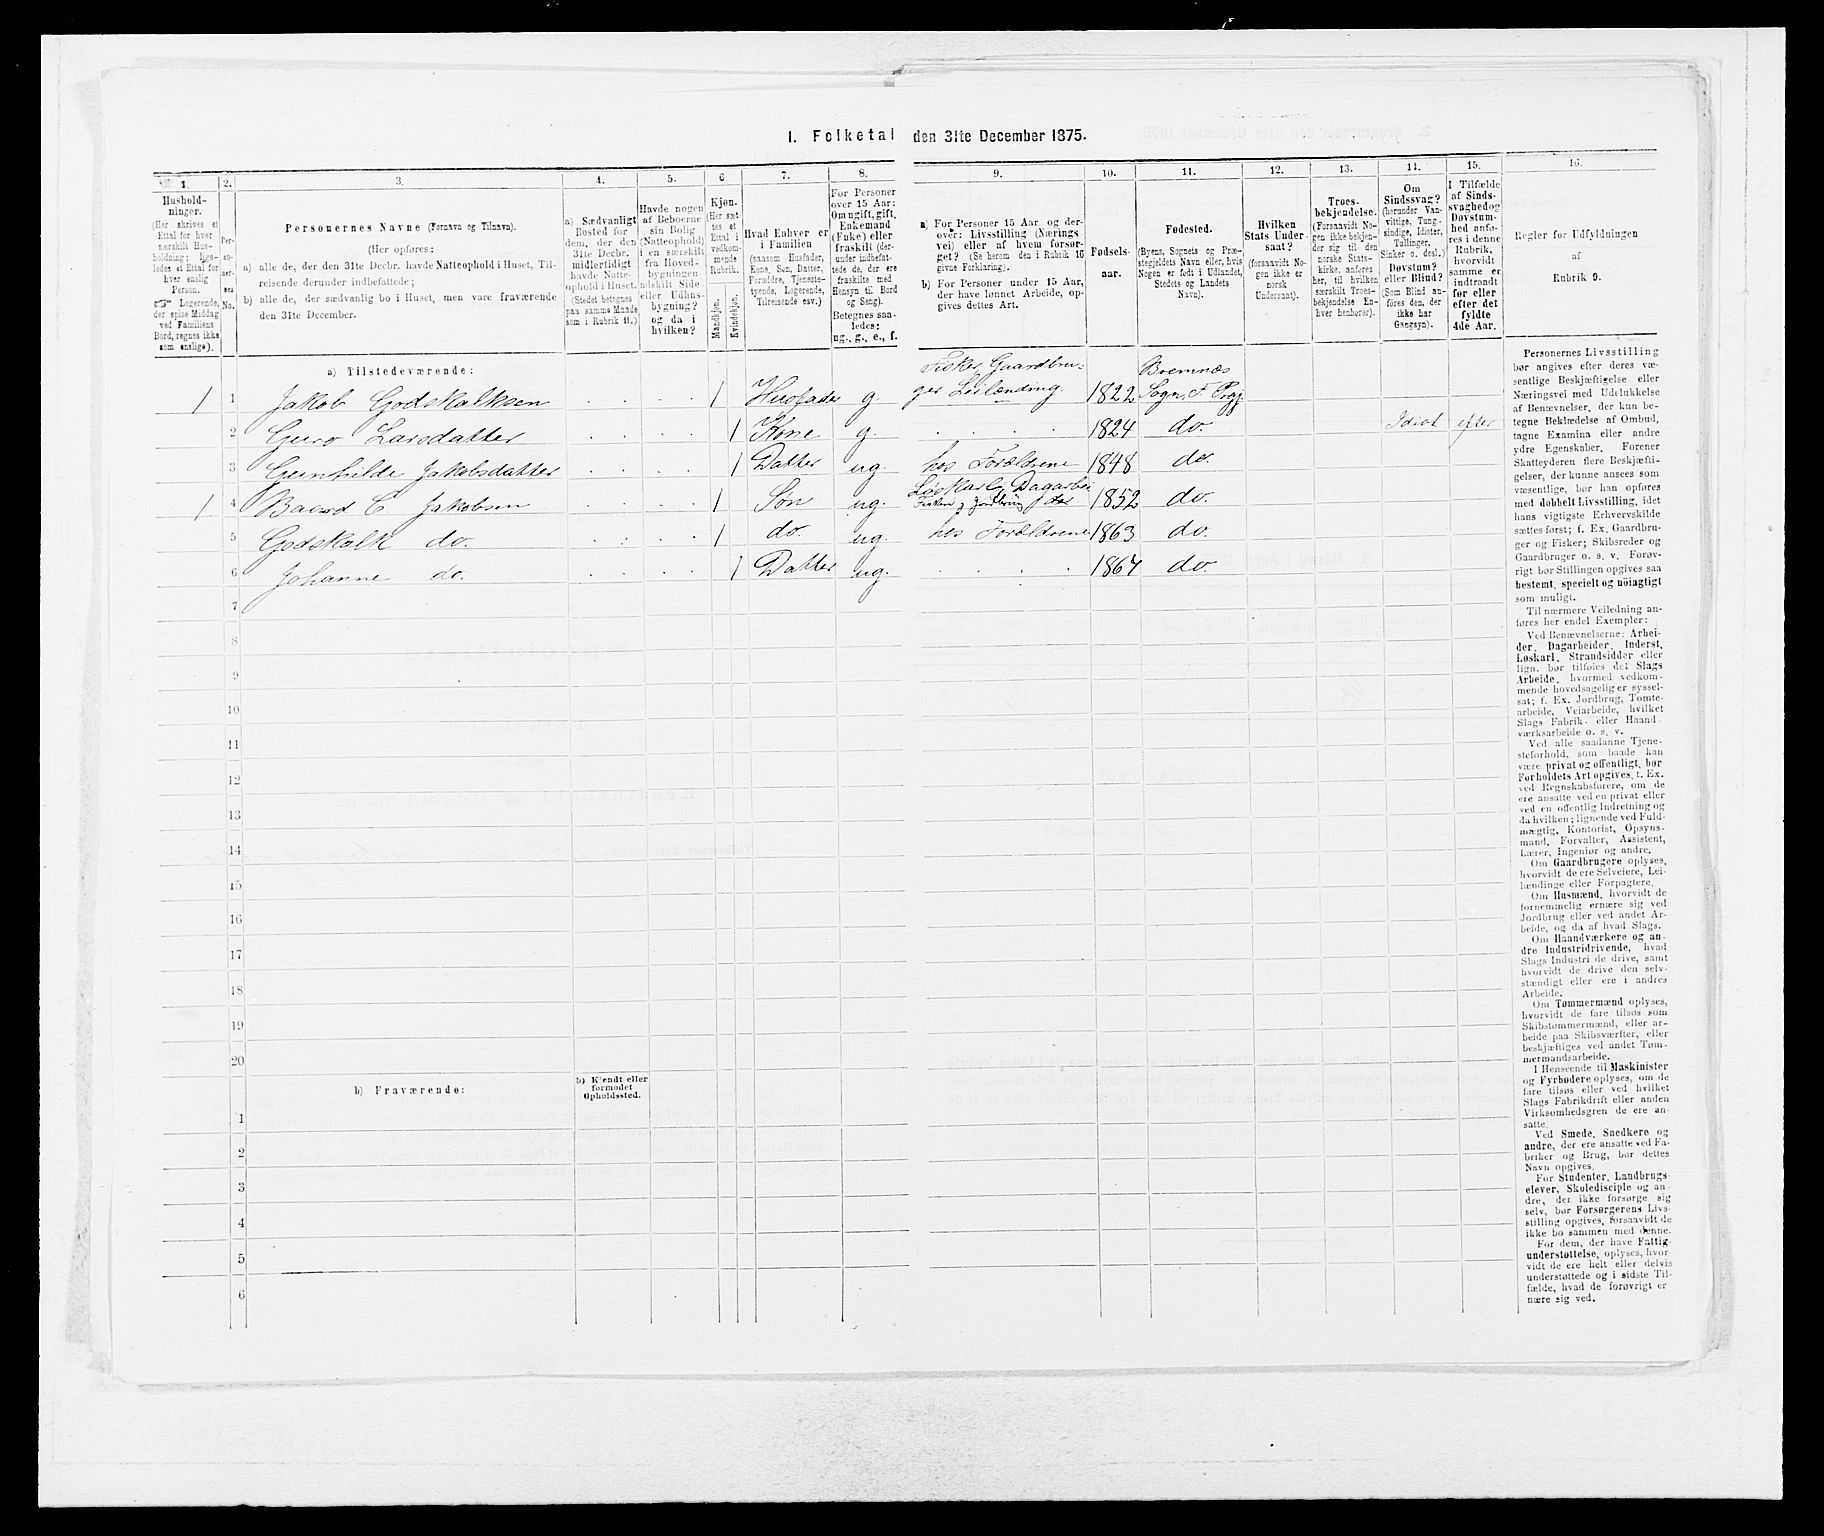 I. Folketal den 31te December 1875.
1. 2. 3. 4. 5. 6 7. 8. 9. 10. 11. 12. 13. 14. 15. 16.
Hushold-
ninger.
(Her skrives et
Ettal for hver
særskilt Hus-
holdning; lige-
ledes et Ettal for
hver enslig
Person.
☞ Logerende,
der spise Middag
ved Familiens
Bord, regnes ikke
som enslige).
Per-
so-
ner-
nes
No.
Personernes Navne (Fornavn og Tilnavn).
(Her opføres:
a) alle de, der den 31te Decbr. havde Natteophold i Huset, Til-
reisende derunder indbefattede;
b) alle de, der sædvanlig bo i Huset, men vare fraværende
den 31te December.
a) Sædvanligt
Bosted for
dem, der den
31te Decbr.
midlertidigt
havde Natte-
ophold i Huset.
(Stedet betegnes
paa samme Maade
som i Rubrik 11.)
Havde nogen
af Beboerne
sin Bolig
(Natteophold)
i en særskilt
fra Hoved-
bygningen
adskilt Side
eller Udhus-
bygning?
og da i
hvilken?
Kjøn.
(Her sæt
tes et
Ettal i
vedkom-
mende
Rubrik.
Mandkjøn.
Kvindekjøn.
Hvad Enhver er
i Familien
(saasom Husfader,
Kone, Søn, Datter,
Forældre, Tjeneste-
tyende, Logerende,
Tilreisende osv.)
For Personer
over 15 Aar:
Om ugift, gift,
Enkemand
(Enke) eller
fraskilt (der-
under indbefat-
tede de, der ere
fraskilte med
Hensyn til Bord
og Seng).
Betegnes saa-
ledes:
ug., g., e., f.
a) For Personer 15 Aar og der-
over: Livsstilling (Nærings
vei) eller af hvem forsør-
get? (Se herom den i Rubrik 16
givne Forklaring).
b) For Personer under 15 Aar,
der have lønnet Arbeide, op-
gives dettes Art.
Fødsels-
aar.
Fødested.
(Byens, Sognets og Præ-
stegjeldets Navn eller, hvis
Nogen er født i Udlandet,
Stedets og Landets
Navn).
Hvilken
Stats Under-
saat?
(forsaavidt No-
gen ikke er
norsk
Undersaat).
Troes-
bekjendelse.
(Forsaavidt No-
gen ikke bekjen-
der sig til den
norske Stats-
kirke, anføres
her, til hvilken
særskilt Troes-
bekjendelse En-
hver henhører).
Om
Sindssvag?
(herunder Van-
vittige, Tung-
sindige, Idioter,
Tullinger,
Sinker o. desl.)
Døvstum?
eller Blind?
(Som Blind an-
føres den, der
ikke har
Gangsyn).
I Tilfælde
af Sinds-
svaghed og
Døvstum-
hed anfø-
res i denne
Rubrik,
hvorvidt
samme er
indtraadt
før eller
efter det
fyldte
4de Aar.
Regler for Udfyldningen
af
Rubrik 9.
a) Tilstedeværende:
Fisker, Gaardbru- Bremnæs
1 1 Jakob Godskalksen 1 Husfader g. ger Leilænding. 1822 Sogn, F. Prgj.
2 Guro Larsdatter 1 Kone g. 1824 do Idiot efter
3 Gunhilde Jakobsdatter 1 Datter ug. hos Forældrene 1848 do.
Løskarl, Dagarbei
1 4 Baard C. Jakobsen 1 Søn ug. 1852 do.
5 Godskalk do. 1 do. ug. hos Forældrene 1863 do.
6 Johanne do. 1 Datter ug. 1867 do.
7
8
9
10
11
12
13
14
15
16
17
18
19
20
b) Fraværende:
b) Kjendt eller
formodet
Opholdssted.
1
2
3
4
5
6
Personernes Livsstilling
bør angives efter deres væ-
sentlige Beskjæftigelse eller
Næringsvei med Udelukkelse
af Benævnelser, der kun be-
tegne Beklædelse af Ombud,
tagne Examina eller andre
ydre Egenskaber. Forener
Skatteyderen flere Beskjæfti-
gelser, der kunne ansees som
væsentlige, bør han opføres
med dobbelt Livsstilling, idet
hans vigtigste Erhvervskilde
sættes først; f. Ex. Gaardbru-
ger og Fisker; Skibsreder og
Gaardbruger o. s. v. Forøv-
rigt bør Stillingen opgives saa
bestemt, specielt og nöiagtigt
som muligt.
Til nærmere Veiledning an-
føres her endel Exempler:
Ved Benævnelserne: Arbei-
der, Dagarbeider, Inderst,
Løskarl, Strandsidder eller
lign. bør tilføies det Slags
Arbeide, hvormed vedkom-
mende hovedsagelig er syssel-
sat; f. Ex. Jordbrug, Tomte-
arbeide, Veiarbeide, hvilket
Slags Fabrik- eller Haand-
værksarbeide o. s. v.
Ved alle saadanne Tjene-
steforhold, som baade kan
være privat og offentligt, bør
Forholdets Art opgives, t. Ex.
ved Regnskabsførere, om de
ere ansatte ved en privat eller
ved en offentlig Indretning og
da hvilken; lignende ved Fuld-
mægtig, Kontorist, Opsyns-
mand, Forvalter, Assistent,
Lærer, Ingeniør og andre.
Om Gaardbrugere oplyses,
hvorvidt de ere Selveiere, Lei-
lændinge eller Forpagtere.
Om Husmænd, hvorvidt de
fornemmelig ernære sig ved
Jordbrug eller ved andet Ar-
beide, og da af hvad Slags.
Om Haandværkere og an-
dre Industridrivende, hvad
Slags Industri de drive, samt
hvorvidt de drive den selv-
stændigt eller ere i andres
Arbeide.
Om Tømmermænd oplyses,
hvorvidt de fare tilsøs som
Skibstømmermænd, eller ar-
beide paa Skibsværfter, eller
beskjæftiges ved andet Tøm-
mermandsarbeide.
I Henseende til Maskinister
og Fyrbødere oplyses, om de
fare tilsøs eller ved hvilket
Slags Fabrikdrift eller anden
Virksomhedsgren de ere an-
satte.
Ved Smede, Snedkere og
andre, der ere ansatte ved Fa-
briker og Brug, bør dettes
Navn opgives.
For Studenter, Landbrugs-
elever, Skoledisciple og an-
dre, der ikke forsørge sig
selv, bør Forsørgerens Livs-
stilling opgives, forsaavidt de
ikke bo sammen med denne.
For dem, der have Fattig-
understøttelse, oplyses, hvor-
vidt de ere helt eller delvis
understøttede og i sidste Til-
fælde, hvad de forøvrigt er
nære sig ved.